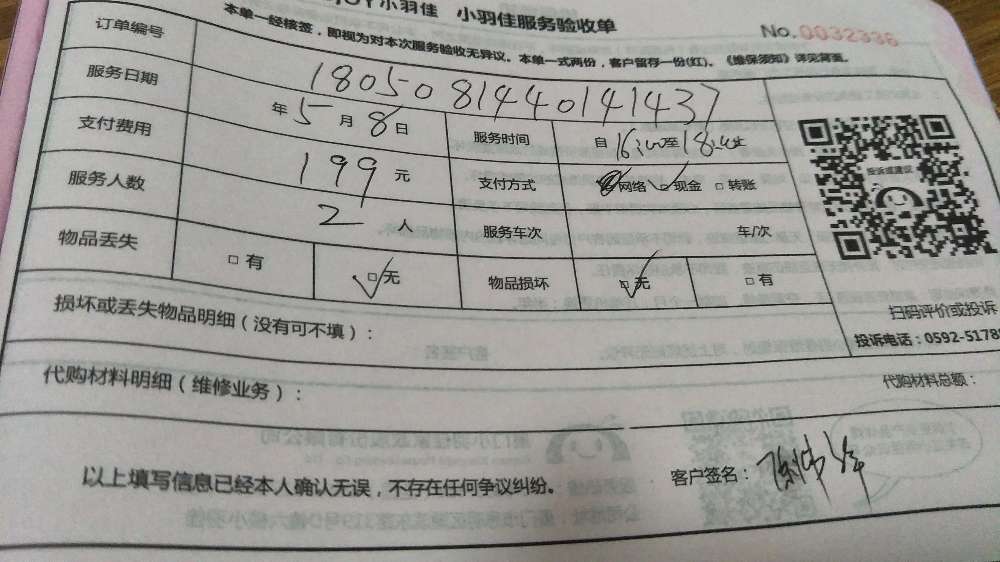 小羽佳 小羽佳服务验收单 No.0032336
本单一经接签，即视为对本次服务验收无异议。本单一式两份，客户留存一份(红)。《维保须知》详见背面。
订单编号 1805081440141437
服务日期 年5月8日 服务时间 自16:00至18:00止
支付费用 199元 支付方式 网络 现金 转账
服务人数 2人 服务车次 车/次
物品丢失 有 无 物品损坏 无 有
投诉或建议
扫码评价或投诉
投诉电话：0592-5178
损坏或丢失物品明细（没有可不填）：
代购材料明细（维修业务）： 代购材料总额：
以上填写信息已经本人确认无误，不存在任何争议纠纷。 客户签名：